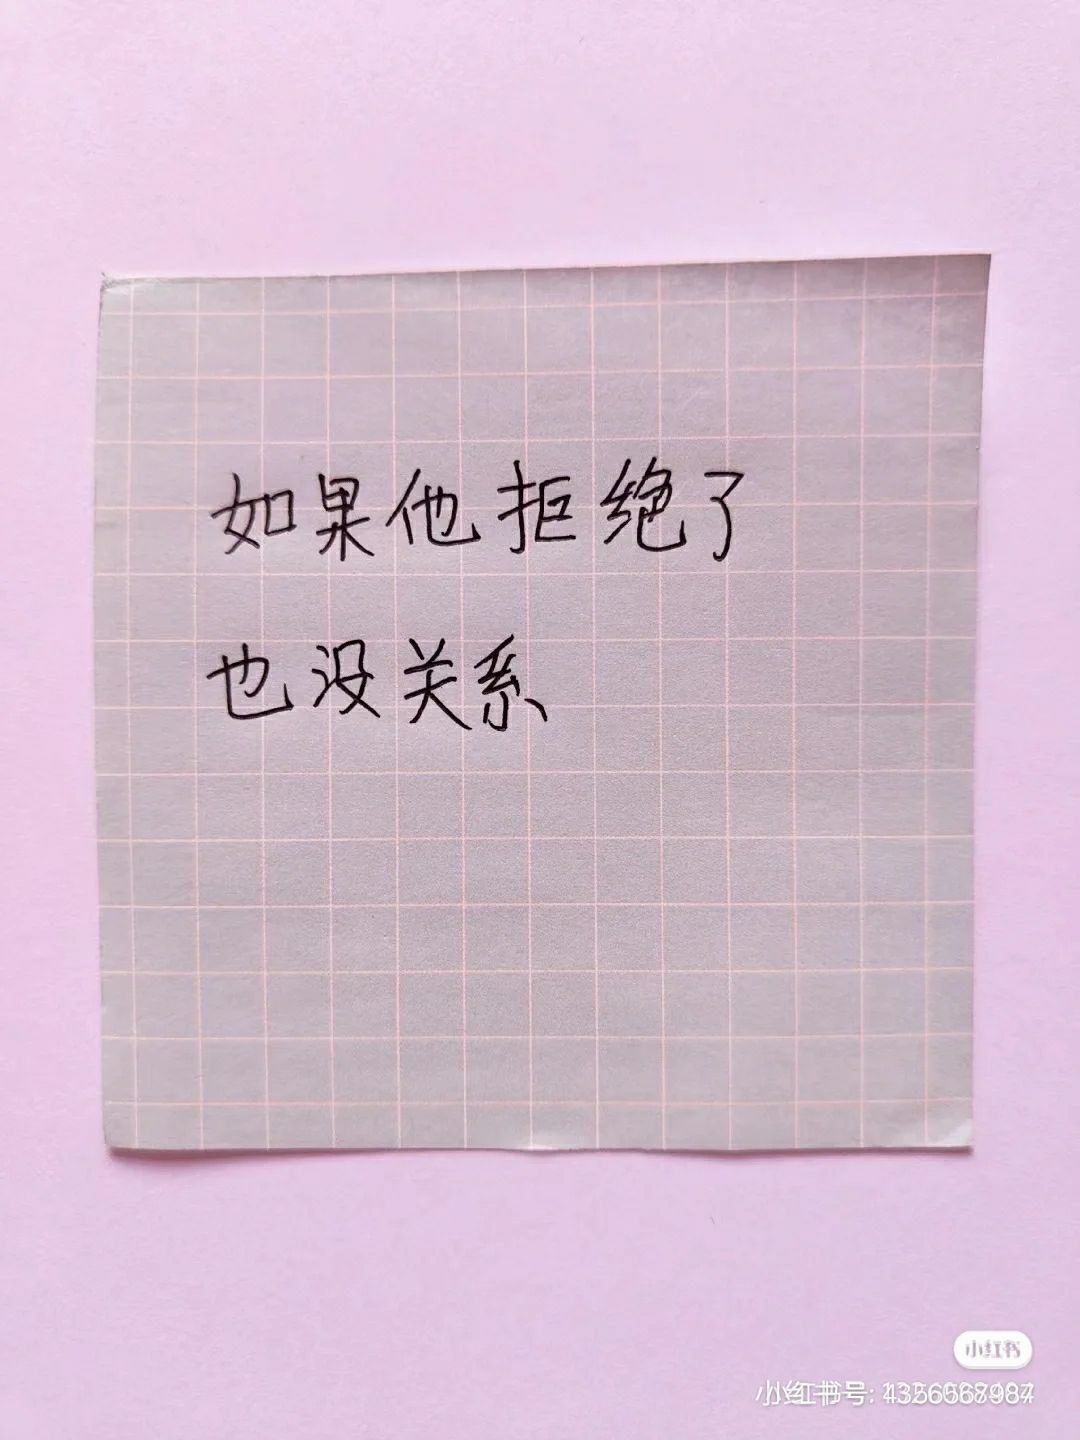 如果他拒绝了
也没关系
小红书
小红书号: